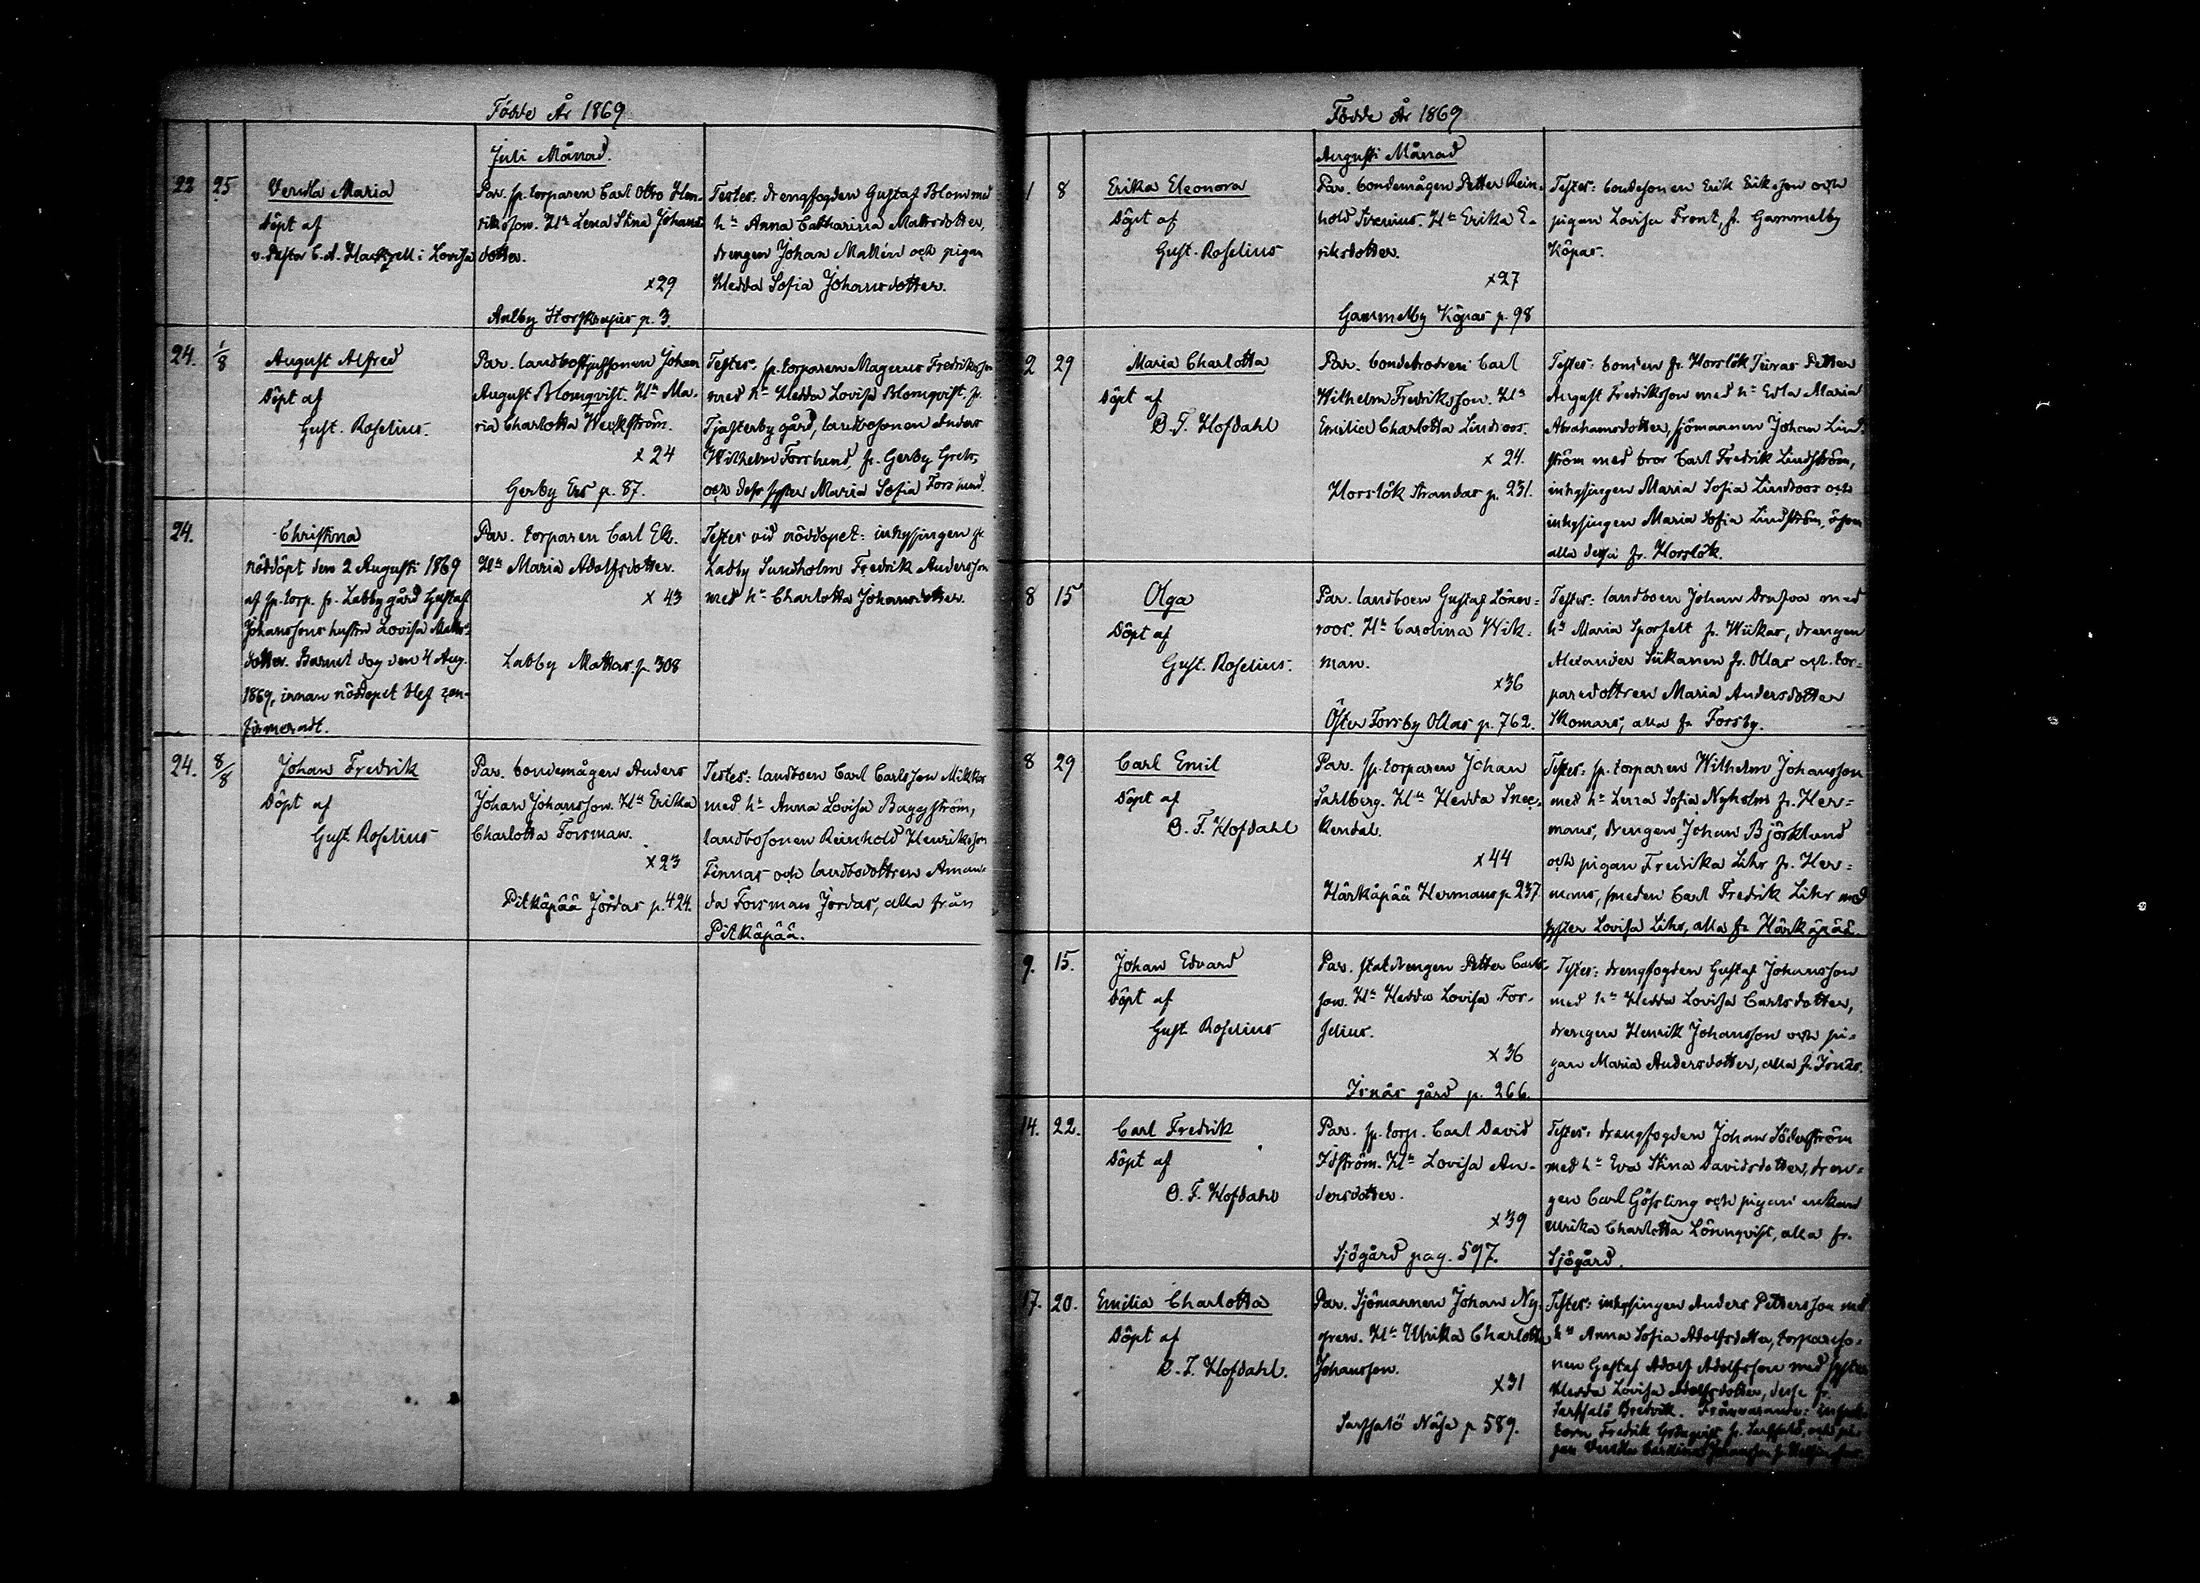 Födde År 1869
Juli Månad.
22 25 Vendla Maria
döpt af
v. Pastor C. A. Hackzell i Lovisa
Par. sp. torparen Carl Otto Hen-
riksson. Hu Lena Stina Johans-
dotter.
x 29
Anby Storskrufvis p. 3
Testes: drengfogden Gustaf Blom med
h. Anna Catharina Mattsdotter,
drengen Johan Mallén och pigan
Hedda Sofia Johansdotter.
24. 1/8 August Alfred
döpt af
Gust. Roselius.
Par. landbo Johan
August Blomqvist. Hu Ma-
ria Charlotta Weckström.
x 24
Gerby Ers p. 87.
Testes: sp. torparen Magnus Fredriksson
med h. Hedda Lovisa Blomqvist, fr.
Tjasterby gård, landbosonen Anders
Wilhelm Forslund, fr. Gerby Grels,
och dess syster Maria Sofia Forslund.
24. Christina
nöddöpt den 2 Augusti 1869
af sp. torp. fr. Labby gård Gustaf
Johanssons hustru Lovisa Matts-
dotter. Barnet dog den 4 Aug.
1869, innan nöddopet blef con-
firmeradt.
Par. torparen Carl Ek.
Hu Maria Adolfsdotter.
x 43
Labby Mattas p. 308
Testes vid nöddopet: inhysingen fr.
Labby Sundholm Fredrik Andersson
med h. Charlotta Johansdotter.
24. 8/8 Johan Fredrik
döpt af
Gust. Roselius
Par. bondemågen Anders
Johan Johansson. Hu Erika
Charlotta Forsman.
x 23
Pitkäpää Jordas p. 424.
Testes: landboen Carl Carlsson Mikkos
med h. Anna Lovisa Baggström,
landbosonen Reinhold Henriksson
Finnas och landbodottren Aman-
da Forsman Jordas, alla från
Pitkäpää.
Födde År 1869
Augusti Månad
1 8 Erika Eleonora
Döpt af
Gust. Roselius
Par. bondemågen Petter Rein-
hold Sirenius. Hu Erika E-
riksdotter.
x 27
Gammelby Köpas p. 98
Testes: bondesonen Erik Eriksson och
pigan Lovisa Front, fr. Gammelby
Köpas.
2 29 Maria Charlotta
Döpt af
O. F. Hofdahl
Par. bondebrodren Carl
Wilhelm Fredriksson. Hu
Emilia Charlotta Lindroos.
x 24.
Horslök Strandas p. 231.
Testes: bonden fr. Horslök Petter
August Fredriksson med h. Edla Maria
Abrahamsdotter, sjömannen Johan Lind-
ström med bror Carl Fredrik Lindström,
inhysingen Maria Sofia Lindroos och
inhysingen Maria Sofia Lindström,
alla dessa fr. Horslök.
8 15 Olga
Döpt af
Gust. Roselius.
Par. landboen Gustaf Lönn-
roos. Hu Carolina Wik-
man.
x 36
Öster Forsby Ollas p. 762.
Testes: landboen Johan med
hu Maria fr. Wikar, drengen
Alexander Siikanen fr. Ollas och tor-
paredottren Maria Andersdotter
Skomars, alla fr. Forsby.
8 29 Carl Emil
Döpt af
O. F. Hofdahl
Par. sp. torparen Johan
Sahlberg. Hu Hedda Snec-
kendal.
x 44
Härkäpää Hermans p. 237
Testes: sp. torparen Wilhelm Johansson
med h. Lena Sofia Nyholm fr. Her-
mans, drengen Johan Björklund
och pigan Fredrika Lihr fr. Her-
mans, smeden Carl Fredrik Lihr med
syster Lovisa Lihr, alla fr. Härkäpää.
9. 15. Johan Edvard
Döpt af
Gust. Roselius
Par. statdrengen Petter Carls-
son. Hu Hedda Lovisa For-
selius.
x 36
Isnäs gård p. 266.
Testes: drengfogden Gustaf Johansson
med h. Hedda Lovisa Carlsdotter,
drengen Henrik Johansson och pi-
gan Maria Andersdotter, alla fr. Isnäs.
14. 22. Carl Fredrik
Döpt af
O. F. Hofdahl
Par. sp. torp. Carl David
Idström. Hu Lovisa An-
dersdotter.
x 39
Sjögård pag. 597.
Testes: drengfogden Johan Söderström
med h. Eva Stina Davidsdotter, dren-
gen Carl Gössling och pigan enkan
Ulrika Charlotta Lönnqvist, alla fr.
Sjögård.
17. 20. Emilia Charlotta
Döpt af
O. F. Hofdahl.
Par. Sjömannen Johan Ny-
gren. Hu Ulrika Charlotta
Johansson.
x 31
Sarfsalö Näse p. 589.
Testes: inhysingen Anders Pettersson med
hu Anna Sofia Adolfsdotter, torpareso-
nen Gustaf Adolf Adolfsson med syster
Hedda Lovisa Adolfsdotter, desse fr.
Sarfsalö Bredvik. Frånvarande:
Fredrik fr. Sarfsalö, och pi-
gan Vendla Carolina Johansson